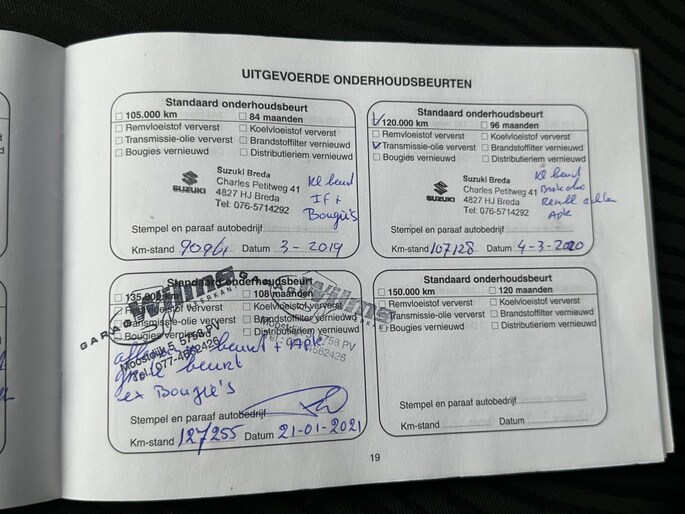 UITGEVOERDE ONDERHOUDSBEURTEN
Standaard onderhoudsbeurt
105.000 km 84 maanden
Remvloeistof ververst Koelvloeistof ververst
Transmissie-olie ververst Brandstoffilter vernieuwd
Bougies vernieuwd Distributieriem vernieuwd
SUZUKI
Suzuki Breda
Charles Petitweg 41
4827 HJ Breda
Tel: 076-5714292
Kl beurt
Bougie's
Stempel en paraaf autobedrijf
Km-stand Datum 3-2019
Standaard onderhoudsbeurt
120.000 km 96 maanden
Remvloeistof ververst Koelvloeistof ververst
Transmissie-olie ververst Brandstoffilter vernieuwd
Bougies vernieuwd Distributieriem vernieuwd
SUZUKI
Suzuki Breda
Charles Petitweg 41
4827 HJ Breda
Tel: 076-5714292
Kl beurt
Apk
Stempel en paraaf autobedrijf
Km-stand 107128 Datum 4-3-2020
Standaard onderhoudsbeurt
135.000 km 108 maanden
Remvloeistof ververst Koelvloeistof ververst
Transmissie-olie ververst Brandstoffilter vernieuwd
Bougies vernieuwd Distributieriem vernieuwd
GARAGE
Wilms
Moostdijk 5 5758 PV
Tel.: 077-4662426
beurt + APK
grote beurt
ex Bougie's
Stempel en paraaf autobedrijf
Km-stand 127255 Datum 21-01-2021
Standaard onderhoudsbeurt
150.000 km 120 maanden
Remvloeistof ververst Koelvloeistof ververst
Transmissie-olie ververst Brandstoffilter vernieuwd
Bougies vernieuwd Distributieriem vernieuwd
Stempel en paraaf autobedrijf
Km-stand Datum
19